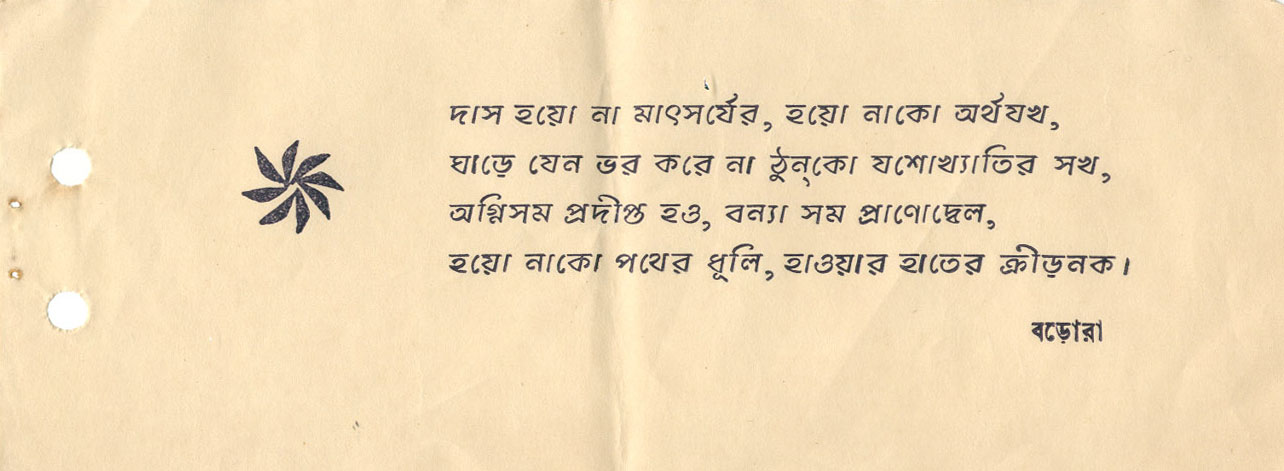 দাস হয়ো না মাৎসর্যের, হয়ো নাকো অর্থযখ,
ঘাড়ে যেন ভর করে না ঠুন্‌কো যশোখ্যাতির সখ,
অগ্নিসম প্রদীপ্ত হও, বন্যা সম প্রাণোদ্বেল,
হয়ো নাকো পথের ধূলি, হাওয়ার হাতের ক্রীড়নক।
বড়োরা